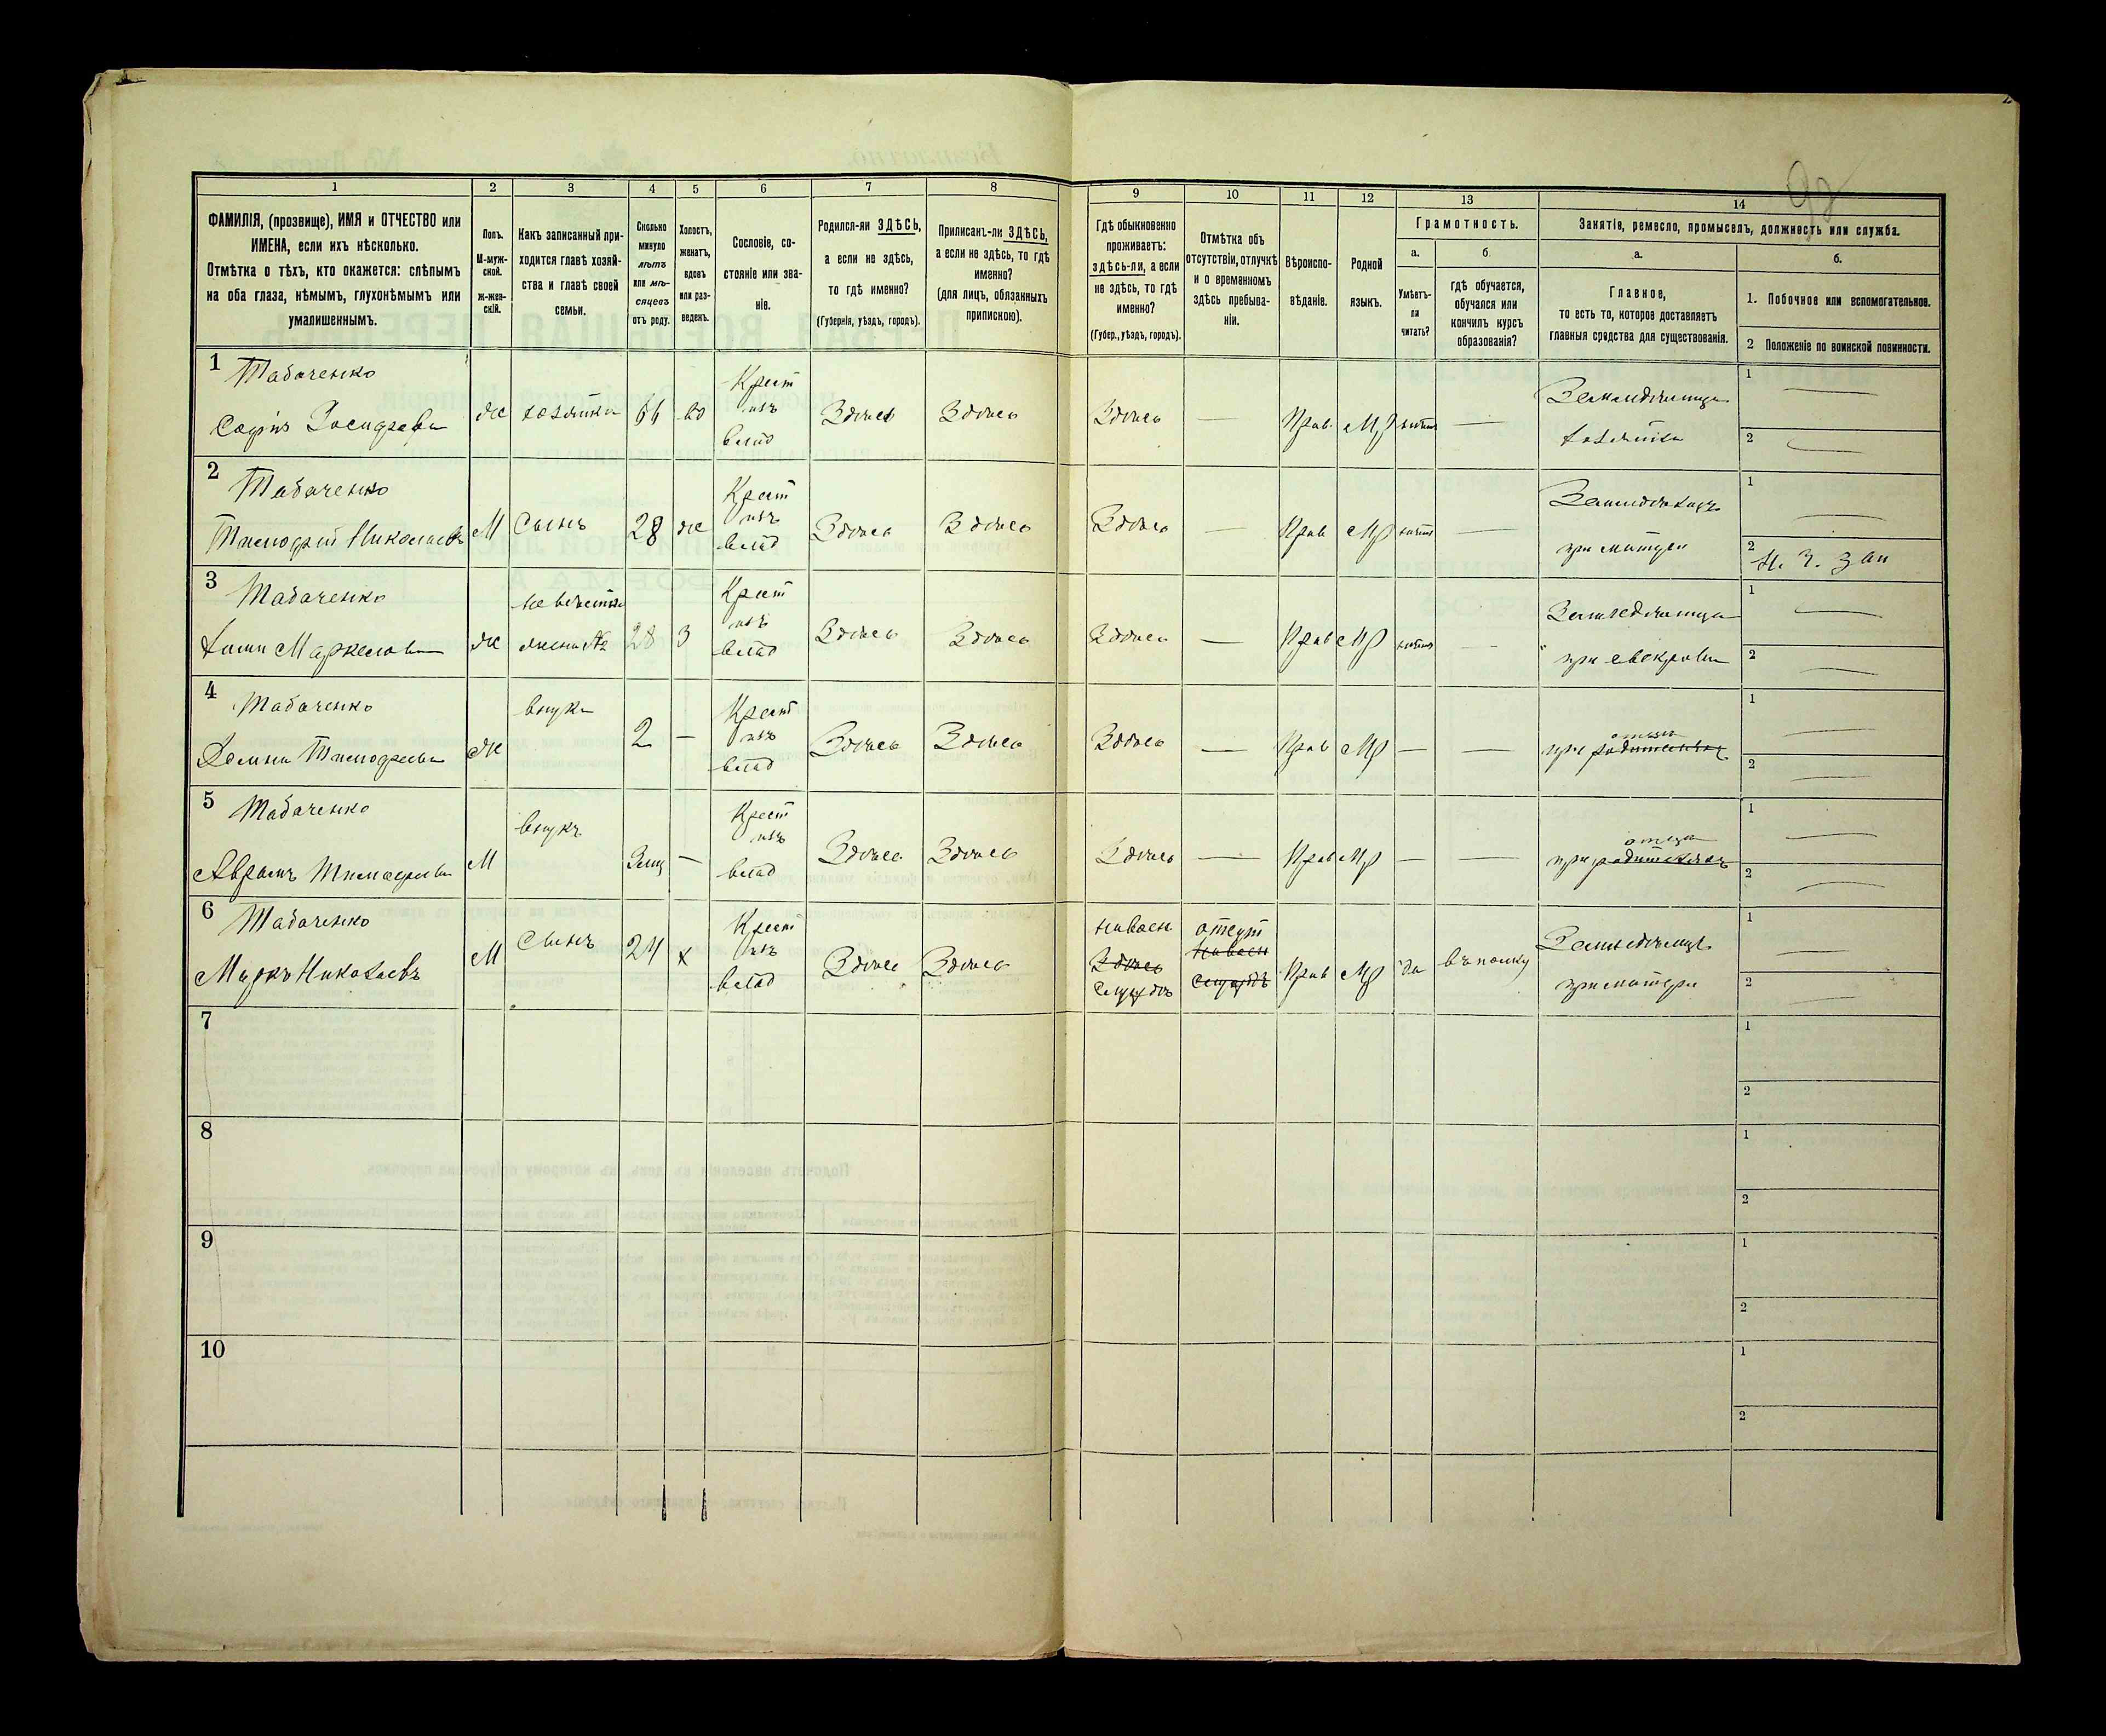 98
1 2 3 4 5 6 7 8 9 10 11 12 13 14
ФАМИЛІЯ, (прозвище), ИМЯ и ОТЧЕСТВО или
ИМЕНА, если ихъ нѣсколько.
Отмѣтка о тѣхъ, кто окажется: слѣпымъ
на оба глаза, нѣмымъ, глухонѣмымъ или
умалишеннымъ.
Полъ.
М-муж-
ской.
Ж-жен-
скій.
Какъ записанный при-
ходится главѣ хозяй-
ства и главѣ своей
семьи.
Сколько
минуло
лѣтъ
или мѣ-
сяцевъ
отъ роду.
Холостъ,
женатъ,
вдовъ
или раз-
веденъ.
Сословіе, со-
стояніе или зва-
ніе.
Родился-ли ЗДѢСЬ,
а если не здѣсь,
то гдѣ именно?
(Губернія, уѣздъ, городъ).
Приписанъ-ли ЗДѢСЬ,
а если не здѣсь, то гдѣ
именно?
(для лицъ, обязанныхъ
припискою).
Гдѣ обыкновенно
проживаетъ:
здѣсь-ли, а если
не здѣсь, то гдѣ
именно?
(Губер., уѣздъ, городъ).
Отмѣтка объ
отсутствіи, отлучкѣ
и о временномъ
здѣсь пребыва-
ніи.
Вѣроиспо-
вѣданіе.
Родной
языкъ.
Грамотность.
а.
Умѣетъ-
ли
читать?
б
гдѣ обучается,
обучался или
кончилъ курсъ
образованія?
Занятіе, ремесло, промыселъ, должность или служба.
а.
Главное,
то есть то, которое доставляетъ
главныя средства для существованія.
б.
1. Побочное или вспомогательное.
2 Положеніе по воинской повинности.
1 Табаченко
Ж хозяйка 64 вд
Крест
изъ
влад
Здѣсь Здѣсь Здѣсь — Прав. Мр нѣтъ —
хозяйка
1 —
2 —
2 Табаченко
Тимофей Николаевъ М Сынъ 28 ж
Крест
изъ
влад
Здѣсь Здѣсь Здѣсь — Прав Мр нѣтъ —
при матери
1 —
2
3 Табаченко
Маркелова Ж невѣстка
28 З
Крест
изъ
влад
Здѣсь Здѣсь Здѣсь — Прав Мр нѣтъ —
при свекрови
1 —
2 —
4 Табаченко
Тимофеева Ж внука 2 —
Крест
изъ
влад
Здѣсь Здѣсь Здѣсь — Прав Мр — —
при отцѣ родителяхъ
1 —
2 —
5 Табаченко
Аврамъ Тимофеевъ М внукъ 3 мц —
Крест
изъ
влад
Здѣсь Здѣсь Здѣсь — Прав Мр — —
при отцѣ родителяхъ
1 —
2 —
6 Табаченко
Маркъ Николаевъ М Сынъ 24 х
Крест
изъ
влад
Здѣсь Здѣсь
на воен
Здѣсь
службѣ
отсут
на воен
службѣ
Прав Мр да въ полку
при матери
1 —
2 —
7
1
2
8
1
2
9
1
2
10
1
2